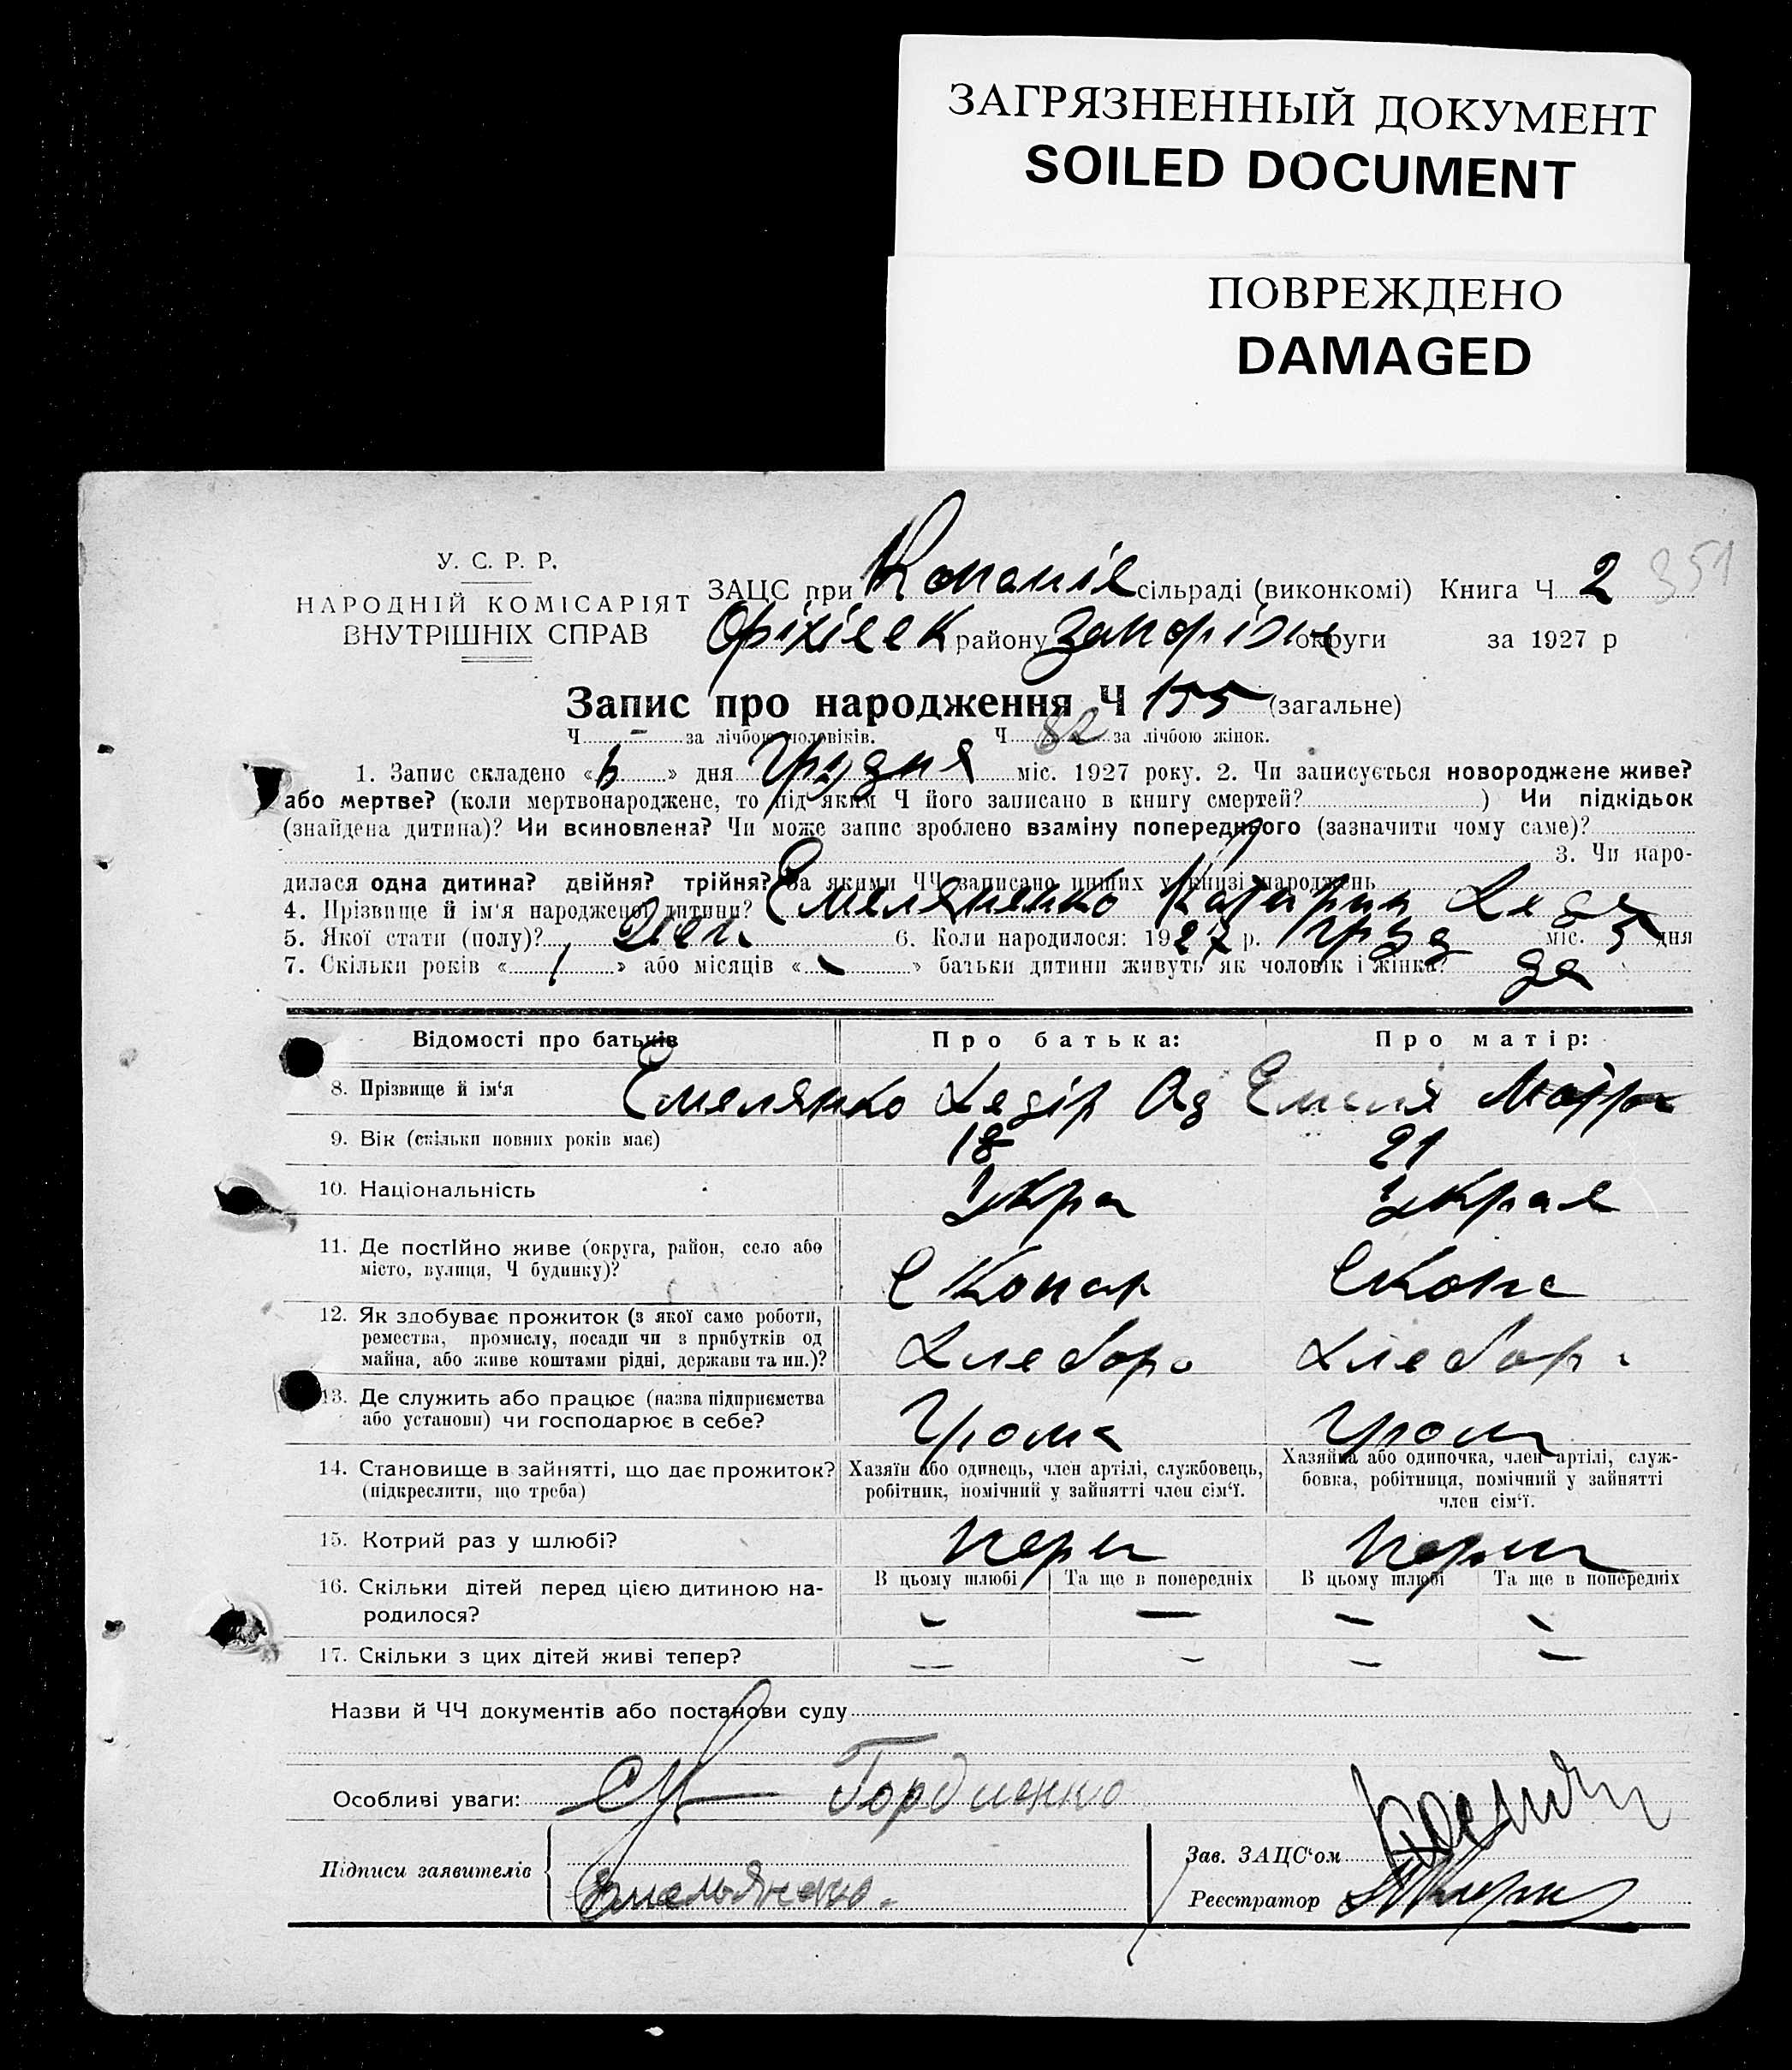 ЗАГРЯЗНЕННЫЙ ДОКУМЕНТ
SOILED DOCUMENT
ПОВРЕЖДЕНО
DAMAGED
У. С. Р. Р.
НАРОДНІЙ КОМІСАРІЯТ
ВНУТРІШНІХ СПРАВ
ЗАЦС при Копанів сільраді (виконкомі) Книга Ч 2 351
Оріхівськ району Запоріж округи за 1927 р
Запис про народження Ч 155 (загальне)
Ч - за лічбою чоловіків. Ч 82 за лічбою жінок.
1. Запис складено « 6 » дня Грудня міс. 1927 року. 2. Чи записується новороджене живе?
або мертве? (коли мертвонароджене, то під яким Ч його записано в книгу смертей? ) Чи підкідьок
(знайдена дитина)? Чи всиновлена? Чи може запис зроблено взаміну попереднього (зазначити чому саме)?
3. Чи наро-
дилася одна дитина? двійня? трійня? За якими ЧЧ записано инших у книзі народжень
4. Прізвище й ім'я народженої дитини? Емеляненко Катерин Хеде
5. Якої стати (полу)? Жен. 6. Коли народилося: 1927 р. Груд міс. 5 дня
7. Скільки років « 1 » або місяців « - » батьки дитини живуть як чоловік і жінка? да
Відомості про батьків Про батька: Про матір:
8. Прізвище й ім'я Емелянко Хедір Од Емеля
9. Вік (скільки повних років має) 18 21
10. Національність Укра Украе
11. Де постійно живе (округа, район, село або
місто, вулиця, Ч будинку)? С Копан С Копа
12. Як здобуває прожиток (з якої само роботи,
ремества, промислу, посади чи з прибутків од
майна, або живе коштами рідні, держави та ин.)? Хлебор Хлебор
13. Де служить або працює (назва підприємства
або установи) чи господарює в себе? Грома Гром
14. Становище в зайнятті, що дає прожиток?
(підкреслити, що треба)
Хазяїн або одинець, член артілі, службовець,
робітник, помічний у зайнятті член сім'ї.
Хазяйка або одиночка, член артілі, служ-
бовка, робітниця, помічний у зайнятті
член сім'ї.
15. Котрий раз у шлюбі? Перш Перш
В цьому шлюбі Та ще в попередніх В цьому шлюбі Та ще в попередніх
16. Скільки дітей перед цією дитиною на-
родилося? - - - -
17. Скільки з цих дітей живі тепер? - - - -
Назви й ЧЧ документів або постанови суду
Особливі уваги: Гордиенко
Підписи заявителів Емельяненко.
Зав. ЗАЦС'ом
Реєстратор